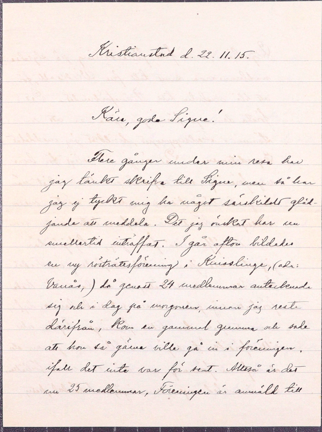 Kristianstad d. 22.11.15.
Kära, goda Signe!
Flere gånger under min resa har
jag tänkt skrifva till Signe, men så har
jag ej tyckt mig ha något särskildt gläd-
jande att meddela. Det jag önskat har nu
emellertid inträffat. I går afton bildades
en ny rösträttsförening i Knisslinge, (vid
Vanås,) då genast 24 medlemmar antecknade
sig och i dag på morgonen, innan jag reste
därifrån, kom en gammal gumma och sade
att hon så gärna ville gå in i föreningen,
ifall det inte var för sent. Alltså är det
nu 25 medlemmar, Föreningen är anmäld till